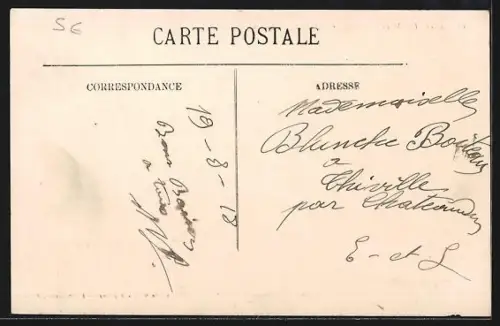 56
CARTE POSTALE
CORRESPONDANCE
19-8-18
Bons Baisers
a tous
ADRESSE
Mademoiselle
Blanche
a
Thiville
par Chateaudun
E-et-L